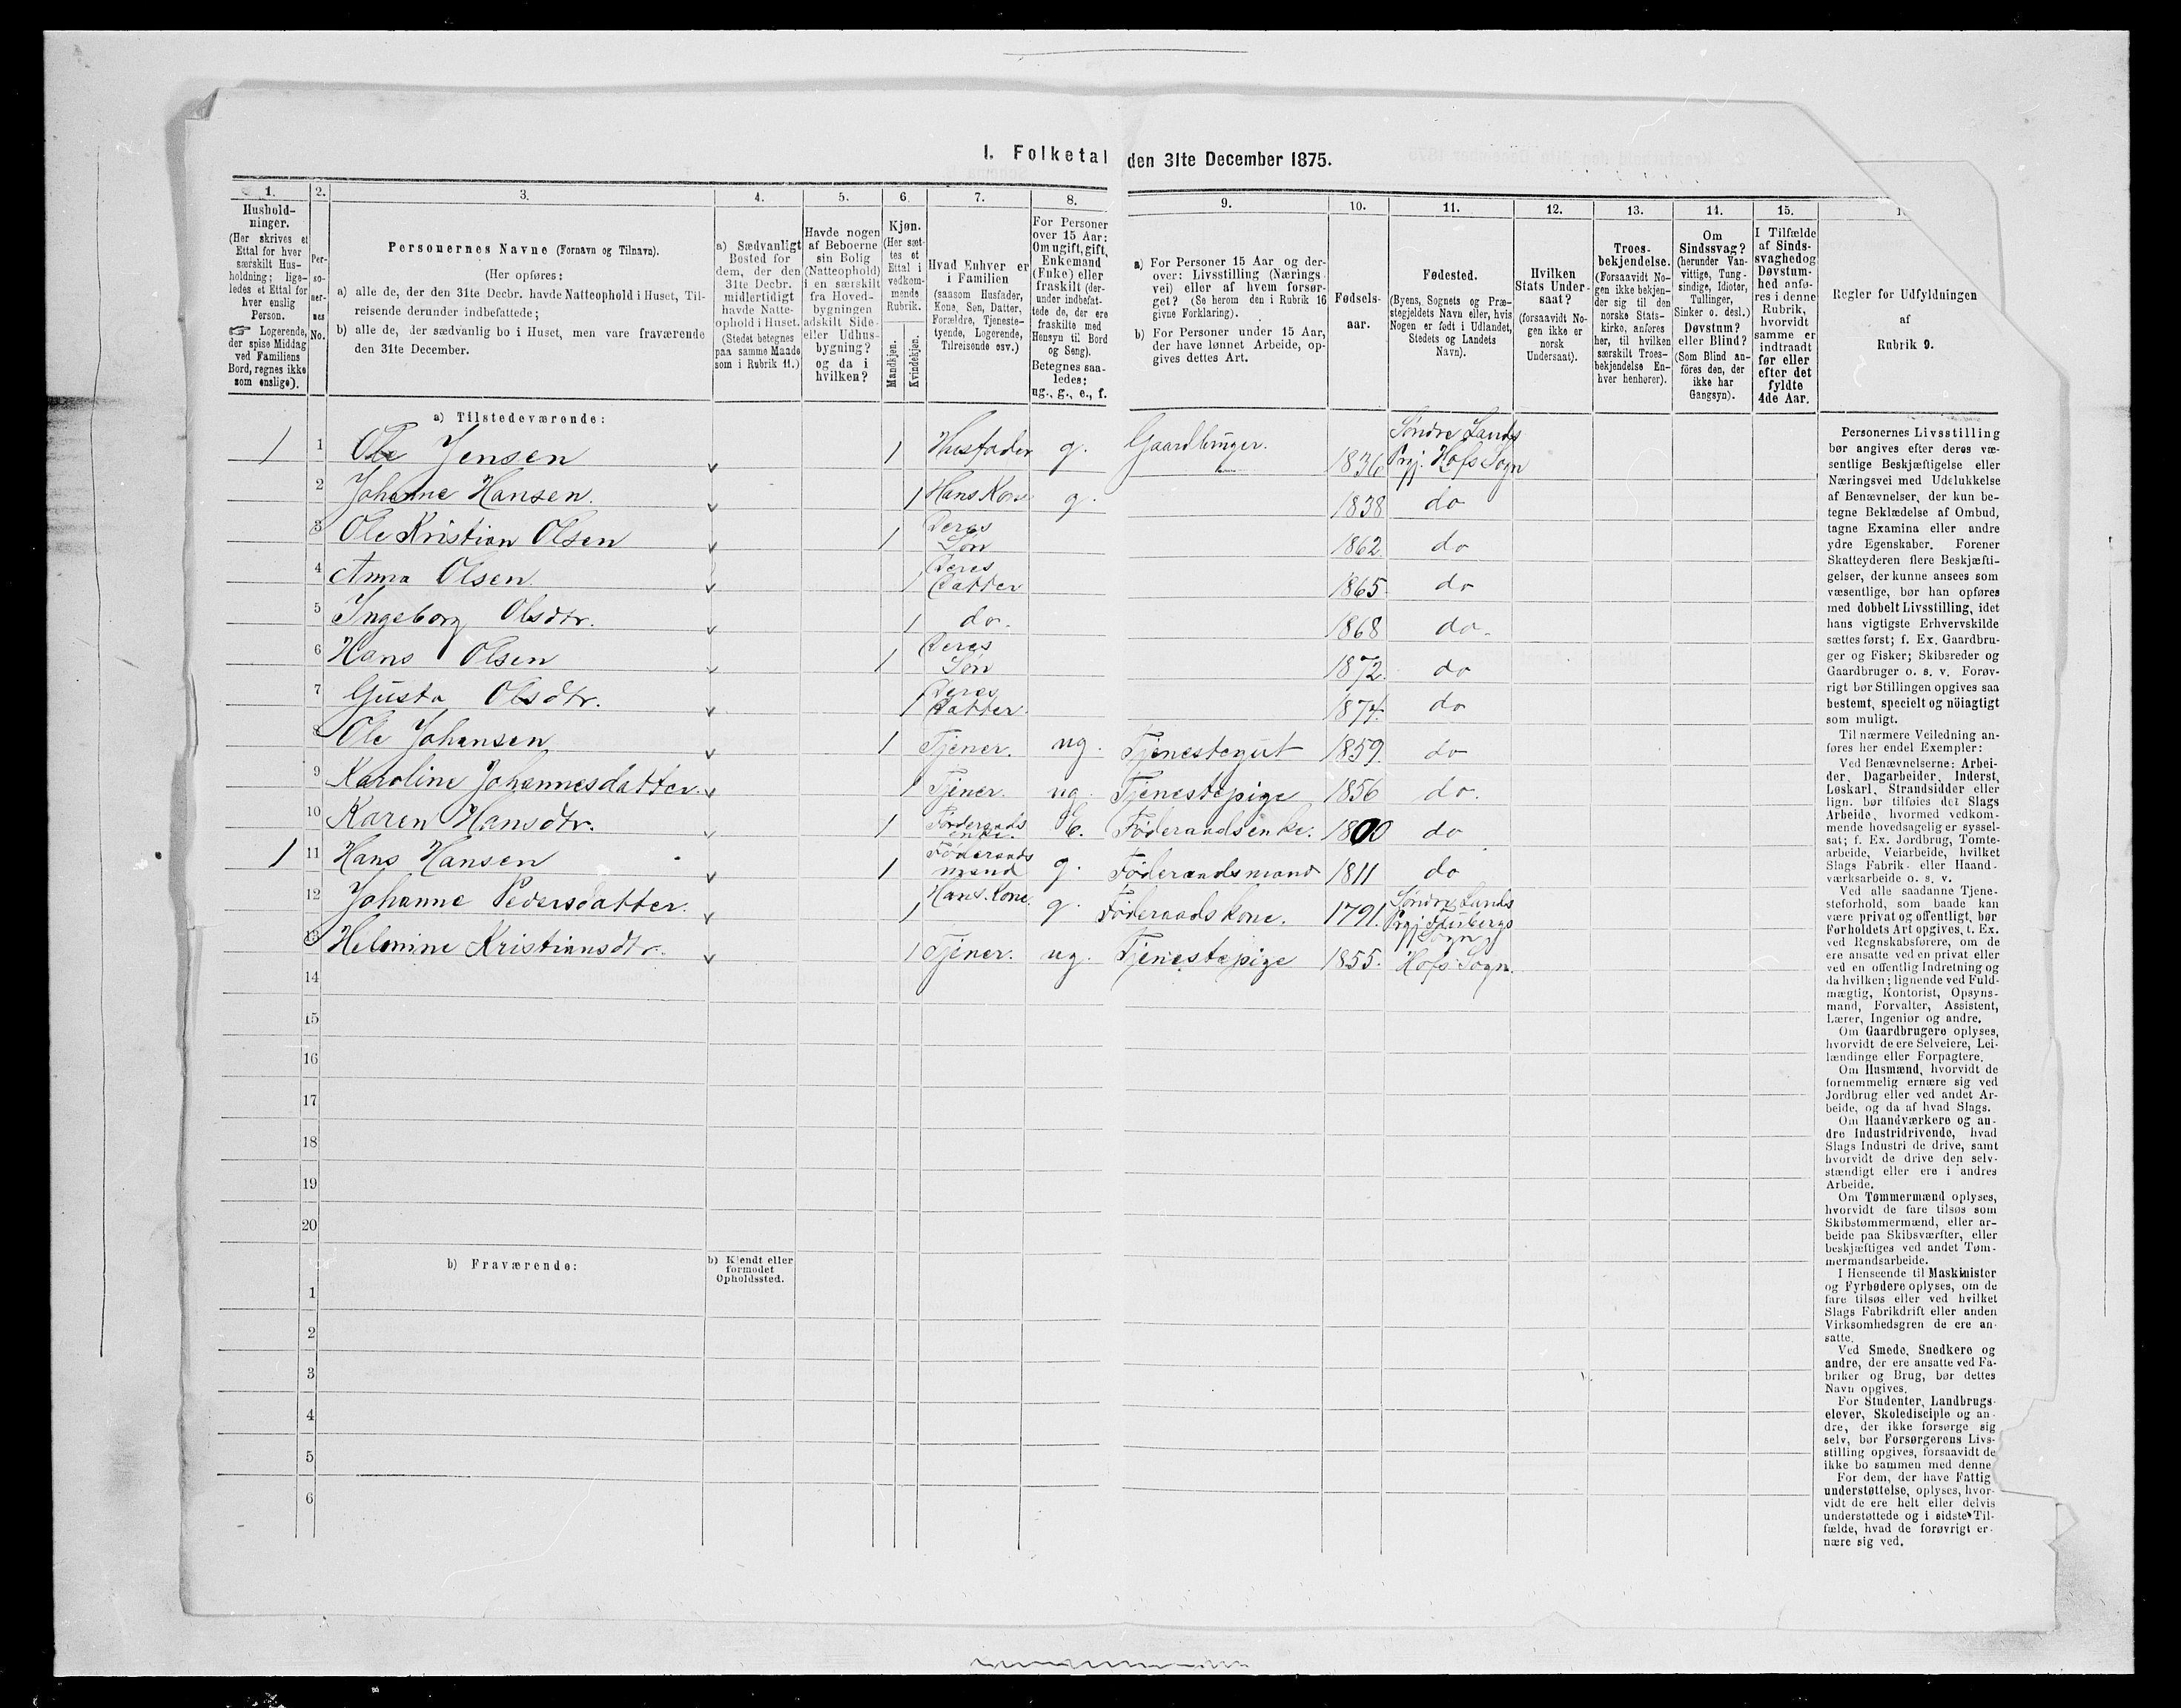 I. Folketal den 31te December 1875.
1. 2. 3. 4. 5. 6. 7. 8. 9. 10. 11. 12. 13. 14. 15.
Hushold-
ninger.
(Her skrives et
Ettal for hver
særskilt Hus-
holdning; lige-
ledes et Ettal for
hver enslig
Person.
☞ Logerende,
der spise Middag
ved Familiens
Bord, regnes ikke
som enslige).
Per-
so-
ner-
nes
No.
Personernes Navne (Fornavn og Tilnavn).
(Her opføres:
a) alle de, der den 31te Decbr. havde Natteophold i Huset, Til-
reisende derunder indbefattede;
b) alle de, der sædvanlig bo i Huset, men vare fraværende
den 31te December.
a) Sædvanligt
Bosted for
dem, der den
31te Decbr.
midlertidigt
havde Natte-
ophold i Huset.
(Stedet betegnes
paa samme Maade
som i Rubrik 11.)
Havde nogen
af Beboerne
sin Bolig
(Natteophold)
i en særskilt
fra Hoved-
bygningen
adskilt Side-
eller Udhus-
bygning?
og da i
hvilken?
Kjøn.
(Her sæt-
tes et
Ettal i
vedkom-
mende
Rubrik.
Mandkjøn.
Kvindekjøn.
Hvad Enhver er
i Familien
(saasom Husfader,
Kone, Søn, Datter,
Forældre, Tjeneste-
tyende, Logerende,
Tilreisende osv.)
For Personer
over 15 Aar:
Om ugift, gift,
Enkemand
(Enke) eller
fraskilt (der-
under indbefat-
tede de, der ere
fraskilte med
Hensyn til Bord
og Seng).
Betegnes saa-
ledes:
ug., g., e., f.
a) For Personer 15 Aar og der-
over: Livsstilling (Nærings-
vei) eller af hvem forsør-
get? (Se herom den i Rubrik 16
givne Forklaring).
b) For Personer under 15 Aar,
der have lønnet Arbeide, op-
gives dettes Art.
Fødsels-
aar.
Fødested.
(Byens, Sognets og Præ-
stegjeldets Navn eller, hvis
Nogen er født i Udlandet,
Stedets og Landets
Navn).
Hvilken
Stats Under-
saat?
(forsaavidt No-
gen ikke er
norsk
Undersaat).
Troes-
bekjendelse.
(Forsaavidt No-
gen ikke bekjen-
der sig til den
norske Stats-
kirke, anføres
her, til hvilken
særskilt Troes-
bekjendelse En-
hver henhører).
Om
Sindssvag?
(herunder Van-
vittige, Tung-
sindige, Idioter,
Tullinger,
Sinker o. desl.)
Døvstum?
eller Blind?
(Som Blind an-
föres den, der
ikke har
Gangsyn).
I Tilfælde
af Sinds-
svaghed og
Døvstum-
hed anfø-
res i denne
Rubrik,
hvorvidt
samme er
indtraadt
før eller
efter det
fyldte
4de Aar.
Regler for Udfyldningen
af
Rubrik 9.
a) Tilstedeværende:
1 1 Ole Jensen v 1 Husfader g. Gaardbruger. 1836 Søndre Lands Prgj. Hofs Sogn
2 Johanne Hansen. v 1 Hans Kone g. 1838 do
3 Ole Kristian Olsen v 1 Deres Søn 1862. do
4 Anna Olsen. v 1 Deres Datter 1865 do
5 Ingeborg Olsdtr. v 1 do. 1868 do.
6 Hans Olsen v 1 Deres Søn 1872. do
7 Gusta Olsdtr. v 1 Deres Datter. 1874. do
8 Ole Johansen v 1 Tjener. ug. Tjenestegut 1859. do
9 Karoline Johannesdatter. v 1 Tjener. ug. Tjenestepige 1856 do.
10 Karen Hansdtr. v 1 Föderaads enke. E. Föderaadsenke. 1800 do
1 11 Hans Hansen v 1 Föderaads mand g. Föderaadsmand 1811 do
12 Johanne Pedersdatter. v 1 Hans Kone. g. Föderaadskone. 1791. Søndre Lands Prgj. Sogn
13 Helmine Kristiansdtr. v 1 Tjener. ug. Tjenestepige 1855. Hofs Sogn.
14
15
16
17
18
19
20
b) Fraværende:
b) Kjendt eller
formodet
Opholdssted.
1
2
3
4
5
6
Personernes Livsstilling
bør angives efter deres væ-
sentlige Beskjæftigelse eller
Næringsvei med Udelukkelse
af Benævnelser, der kun be-
tegne Beklædelse af Ombud,
tagne Examina eller andre
ydre Egenskaber. Forener
Skatteyderen flere Beskjæfti-
gelser, der kunne ansees som
væsentlige, bør han opføres
med dobbelt Livsstilling, idet
hans vigtigste Erhvervskilde
sættes først; f. Ex. Gaardbru-
ger og Fisker; Skibsreder og
Gaardbruger o. s. v. Forøv-
rigt bør Stillingen opgives saa
bestemt, specielt og nöiagtigt
som muligt.
Til nærmere Veiledning an-
føres her endel Exempler:
Ved Benævnelserne: Arbei-
der, Dagarbeider, Inderst,
Løskarl, Strandsidder eller
lign. bør tilføies det Slags
Arbeide, hvormed vedkom-
mende hovedsagelig er syssel-
sat; f. Ex. Jordbrug, Tomte-
arbeide, Veiarbeide, hvilket
Slags Fabrik- eller Haand-
værksarbeide o. s. v.
Ved alle saadanne Tjene-
steforhold, som baade kan
være privat og offentligt, bør
Forholdets Art opgives, t. Ex.
ved Regnskabsførere, om de
ere ansatte ved en privat eller
ved en offentlig Indretning og
da hvilken; lignende ved Fuld-
mægtig, Kontorist, Opsyns-
mand, Forvalter, Assistent,
Lærer, Ingeniør og andre.
Om Gaardbrugere oplyses,
hvorvidt de ere Selveiere, Lei-
lændinge eller Forpagtere.
Om Husmænd, hvorvidt de
fornemmelig ernære sig ved
Jordbrug eller ved andet Ar-
beide, og da af hvad Slags.
Om Haandværkere og an-
dre Industridrivende, hvad
Slags Industri de drive, samt
hvorvidt de drive den selv-
stændigt eller ere i andres
Arbeide.
Om Tømmermænd oplyses,
hvorvidt de fare tilsøs som
Skibstømmermænd, eller ar-
beide paa Skibsværfter, eller
beskjæftiges ved andet Tøm-
mermandsarbeide.
I Henseende til Maskinister
og Fyrbødere oplyses, om de
fare tilsøs eller ved hvilket
Slags Fabrikdrift eller anden
Virksomhedsgren de ere an-
satte.
Ved Smede, Snedkere og
andre, der ere ansatte ved Fa-
briker og Brug, bør dettes
Navn opgives.
For Studenter, Landbrugs-
elever, Skoledisciple og an-
dre, der ikke forsørge sig
selv, bør Forsørgerens Livs-
stilling opgives, forsaavidt de
ikke bo sammen med denne
For dem, der have Fattig
understøttelse, oplyses, hvor-
vidt de ere helt eller delvis
understøttede og i sidste Til-
fælde, hvad de forøvrigt er-
nære sig ved.